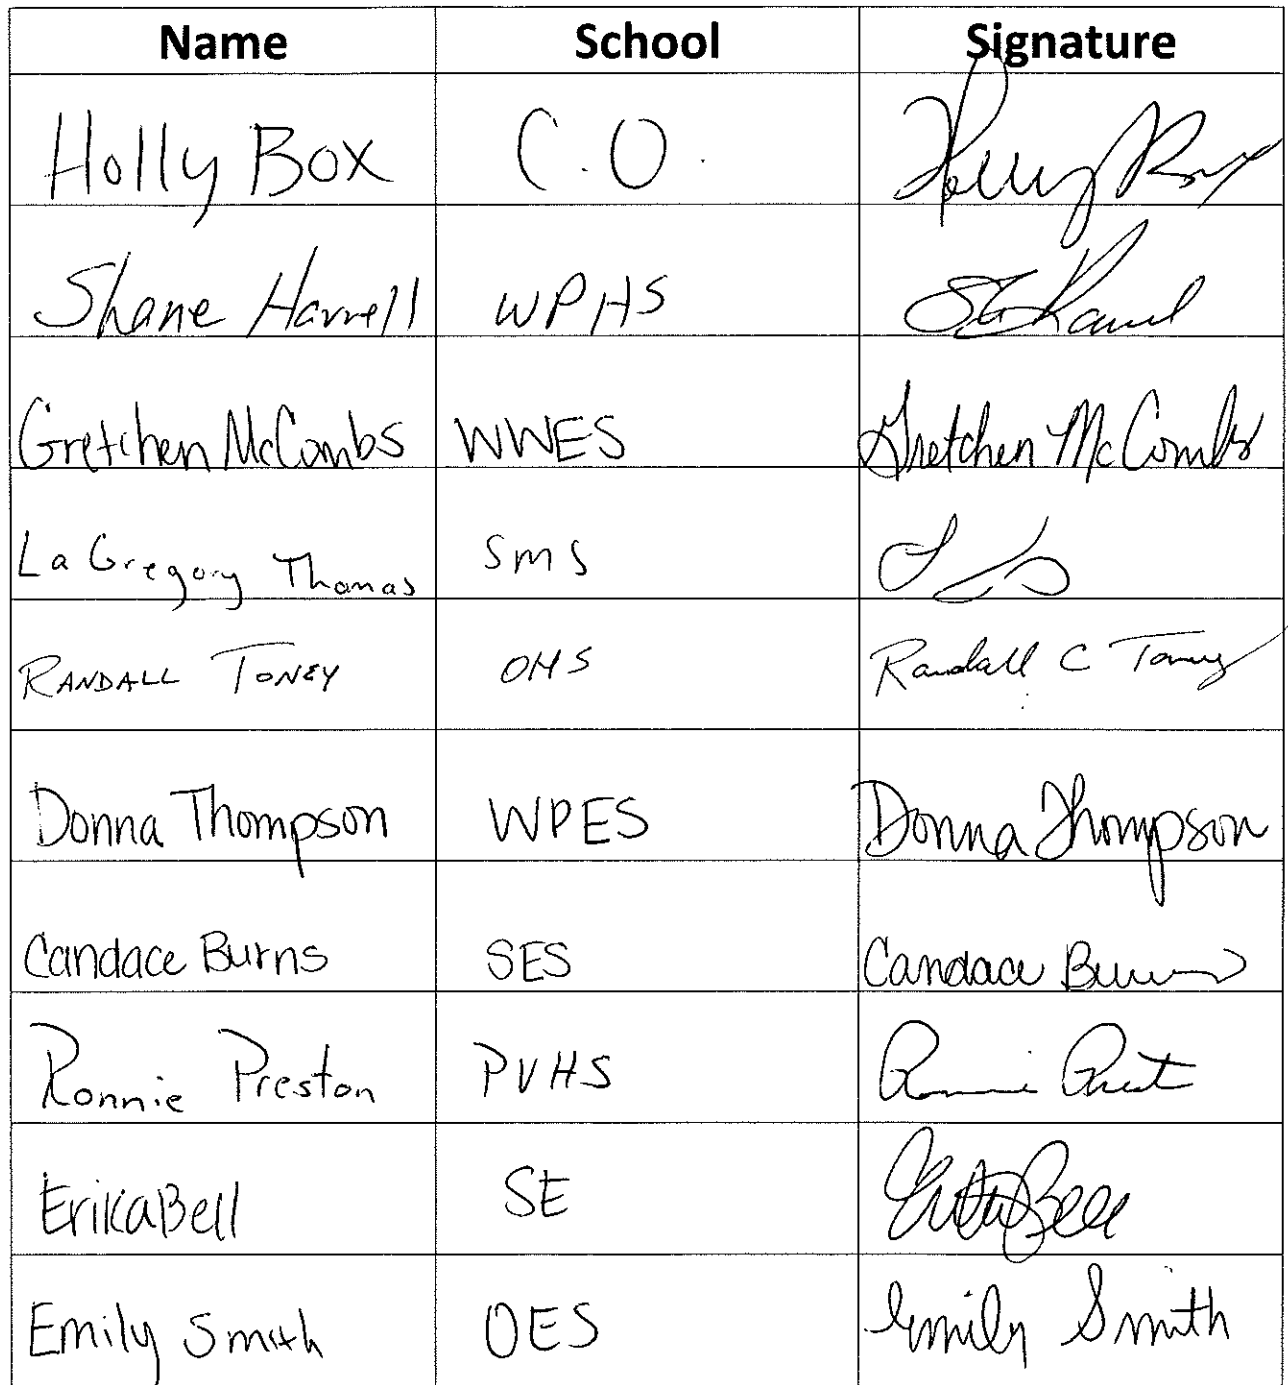 Name School Signature
Holly Box C.O. Holly Box
Shane Harrell WPHS
Gretchen McCombs WWES Gretchen McCombs
La Gregory Thomas SMS
RANDALL TONEY OHS Randall C Toney
Donna Thompson WPES Donna Thompson
Candace Burns SES Candace Burns
Ronnie Preston PVHS Ronnie Prest
Erika Bell SE Erika Bell
Emily Smith OES Emily Smith